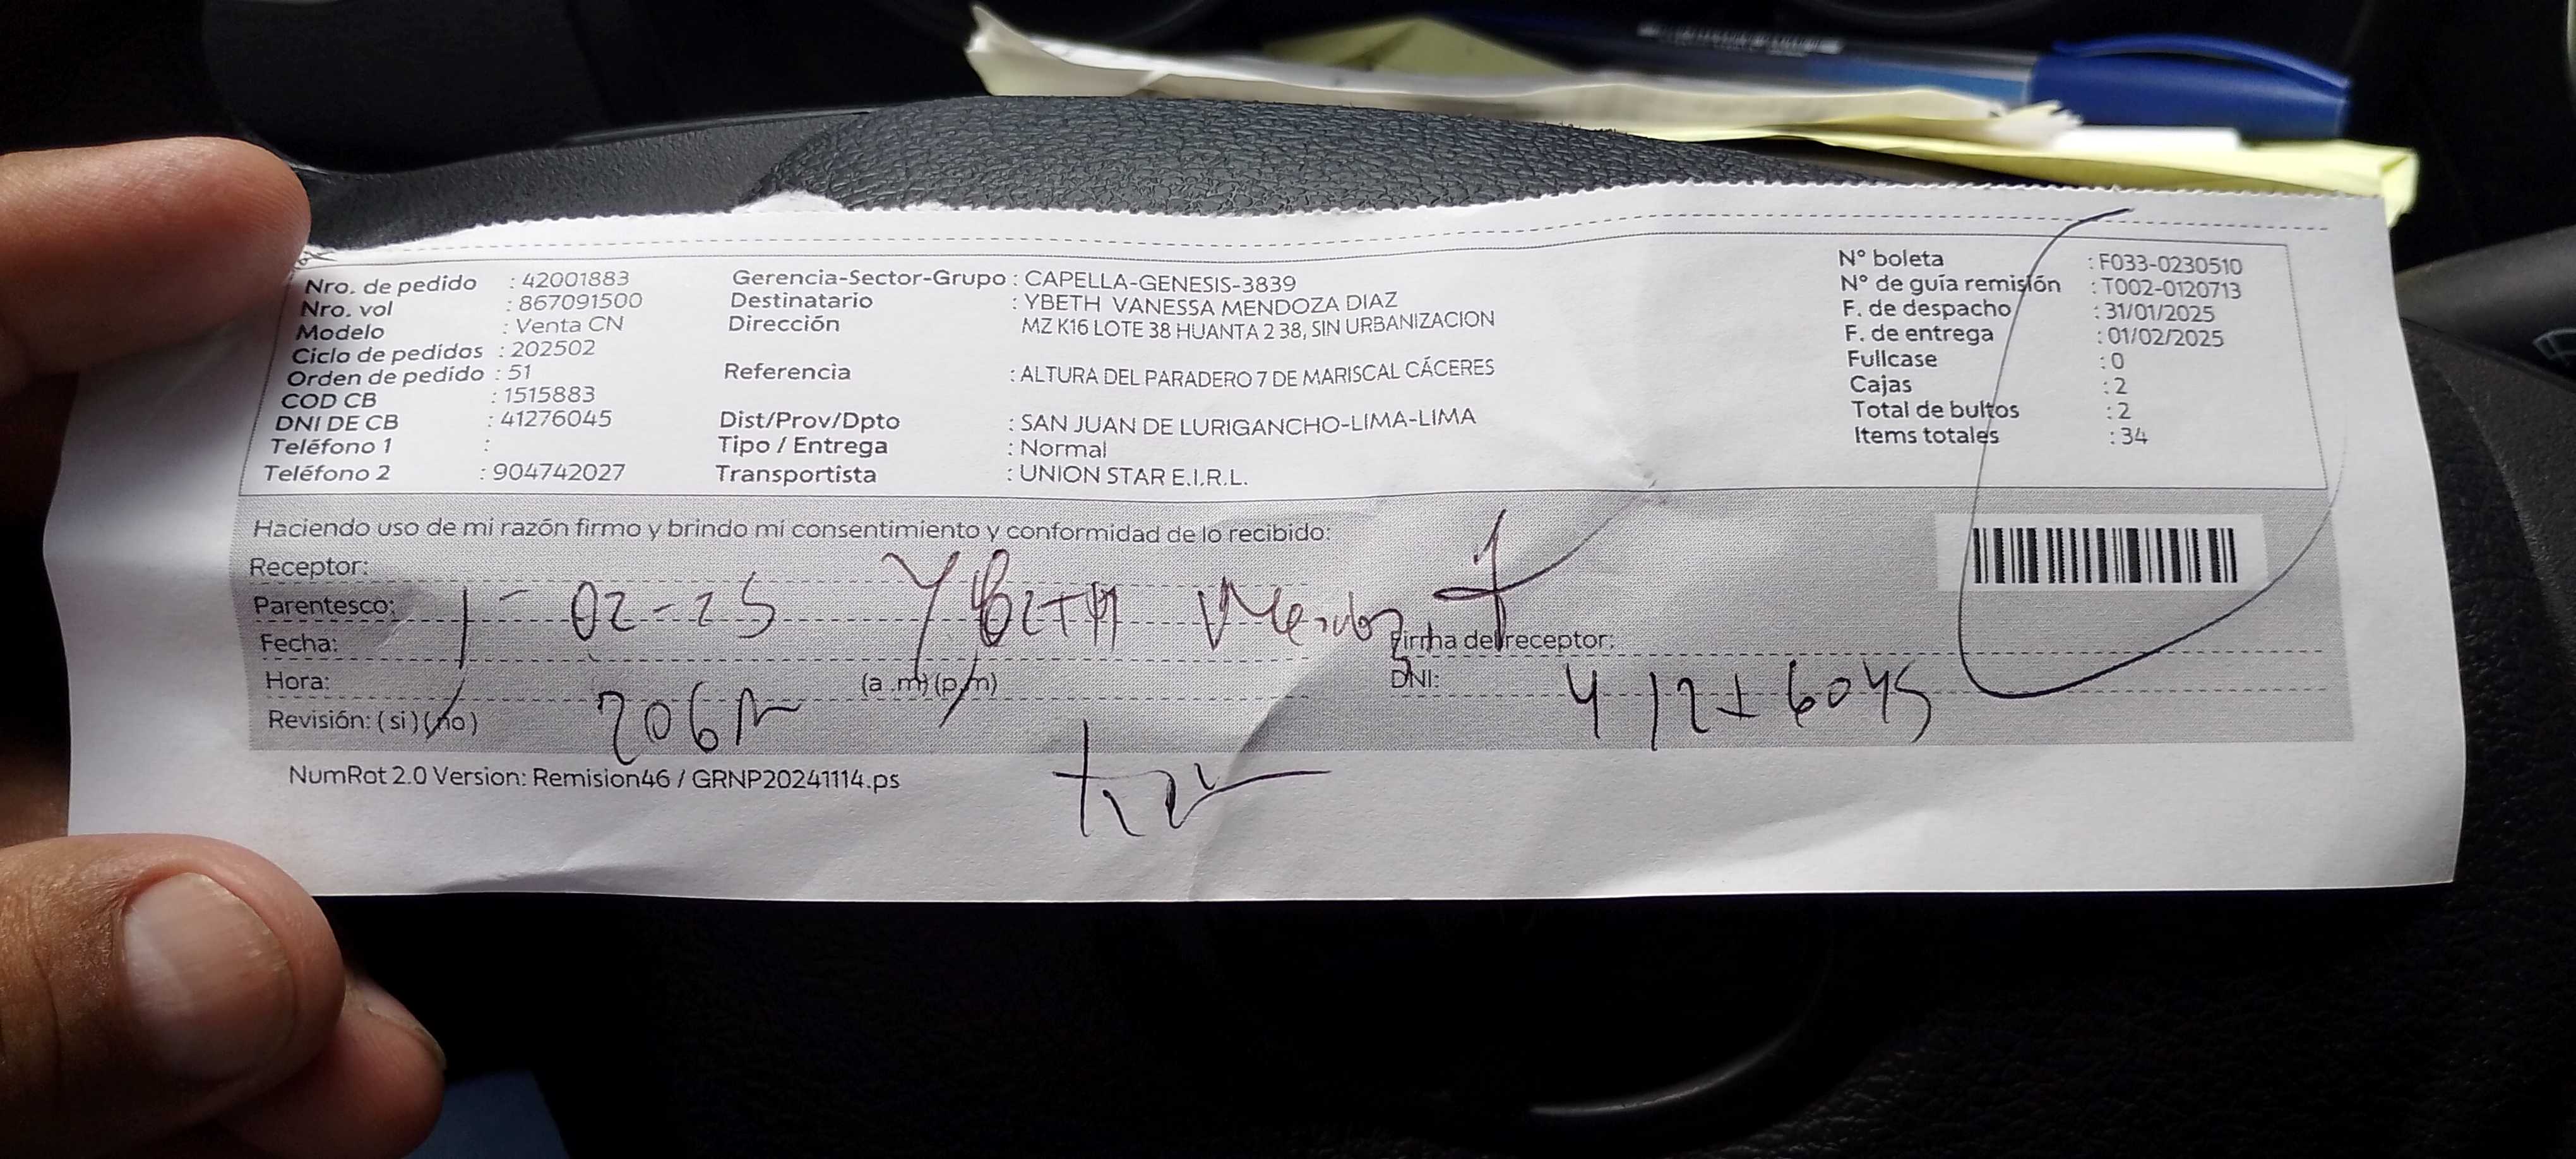 Nro. de pedido : 42001883
Nro. vol : 867091500
Modelo : Venta CN
Ciclo de pedidos : 202502
Orden de pedido : 51
COD CB : 1515883
DNI DE CB : 41276045
Teléfono 1 :
Teléfono 2 : 904742027
Gerencia-Sector-Grupo : CAPELLA-GENESIS-3839
Destinatario : YBETH VANESSA MENDOZA DIAZ
Dirección MZ K16 LOTE 38 HUANTA 2 38, SIN URBANIZACION
Referencia : ALTURA DEL PARADERO 7 DE MARISCAL CÁCERES
Dist/Prov/Dpto : SAN JUAN DE LURIGANCHO-LIMA-LIMA
Tipo / Entrega : Normal
Transportista : UNION STAR E.I.R.L.
N° boleta : F033-0230510
N° de guía remisión : T002-0120713
F. de despacho : 31/01/2025
F. de entrega : 01/02/2025
Fullcase : 0
Cajas : 2
Total de bultos : 2
Items totales : 34
Haciendo uso de mi razón firmo y brindo mi consentimiento y conformidad de lo recibido:
Receptor:
Parentesco: 1-02-25 Ybeth
Fecha: Firma del receptor:
Hora: (a.m) (p.m) DNI: 41276045
Revisión: (si) (no) 206
NumRot 2.0 Version: Remision46 / GRNP20241114.ps